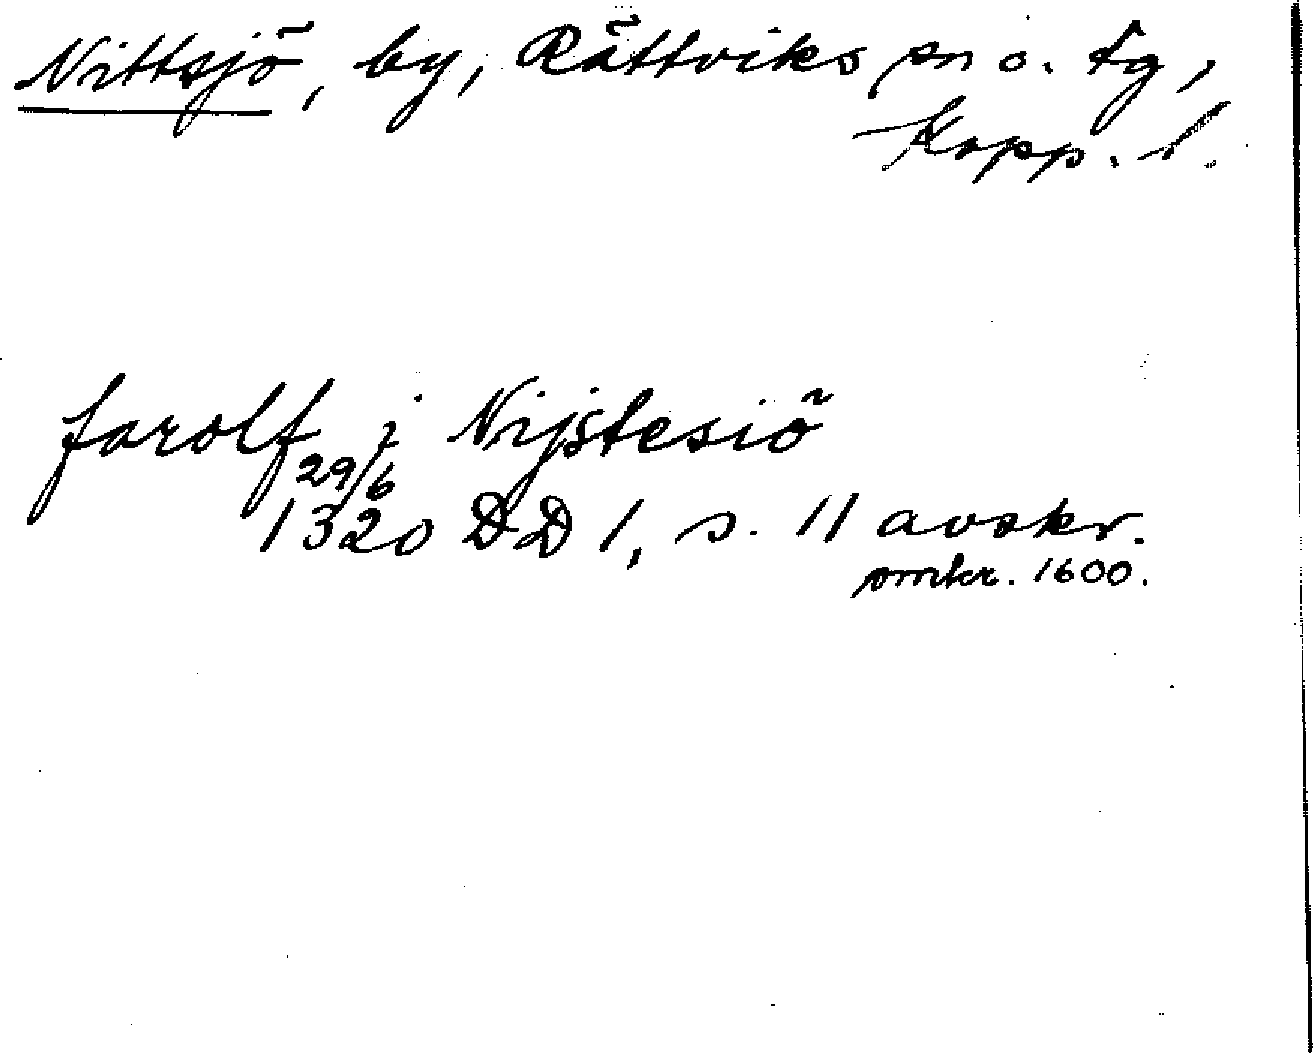 Nittsjö, by, Rättviks sn o. tg,
Kopp. l.
farolf j Nijstesiö
29/6
1320 DD 1, s. 11 avskr.
omkr. 1600.